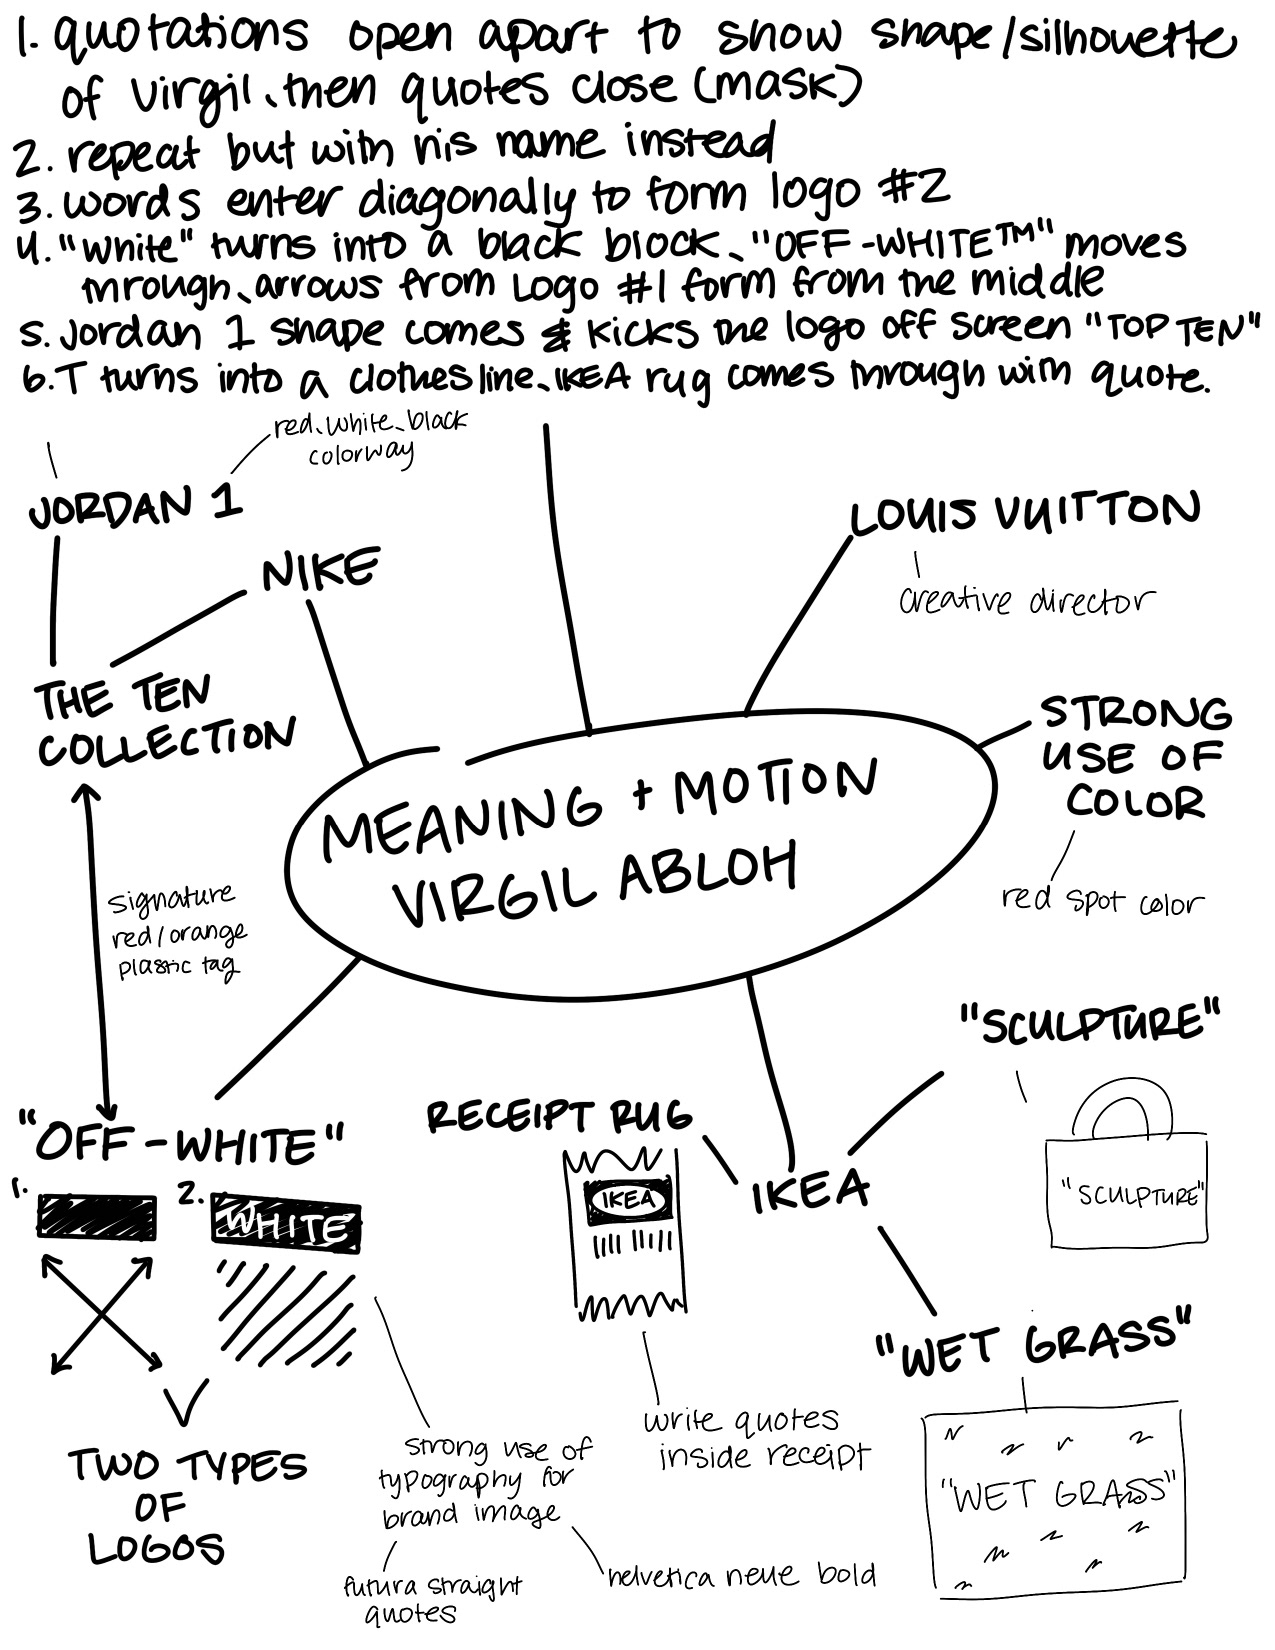 1. quotations open apart to show shape/silhouette
of Virgil, then quotes close (mask)
2. repeat but with his name instead
3. words enter diagonally to form logo #2
4. "white" turns into a black block, "OFF-WHITE™" moves
through, arrows from Logo #1 form from the middle
5. Jordan 1 shape comes & kicks the logo off screen "TOP TEN"
6. T turns into a clothesline, IKEA rug comes through with quote.
red, white, black
colorway
JORDAN 1
NIKE
LOUIS VUITTON
creative director
THE TEN
COLLECTION
STRONG
USE OF
COLOR
red spot color
MEANING + MOTION
VIRGIL ABLOH
signature
red/orange
plastic tag
"SCULPTURE"
"SCULPTURE"
"OFF-WHITE"
1.
2. WHITE
RECEIPT RUG
IKEA
IKEA
"WET GRASS"
"WET GRASS"
TWO TYPES
OF
LOGOS
strong use of
typography for
brand image
futura straight
quotes
helvetica neue bold
write quotes
inside receipt